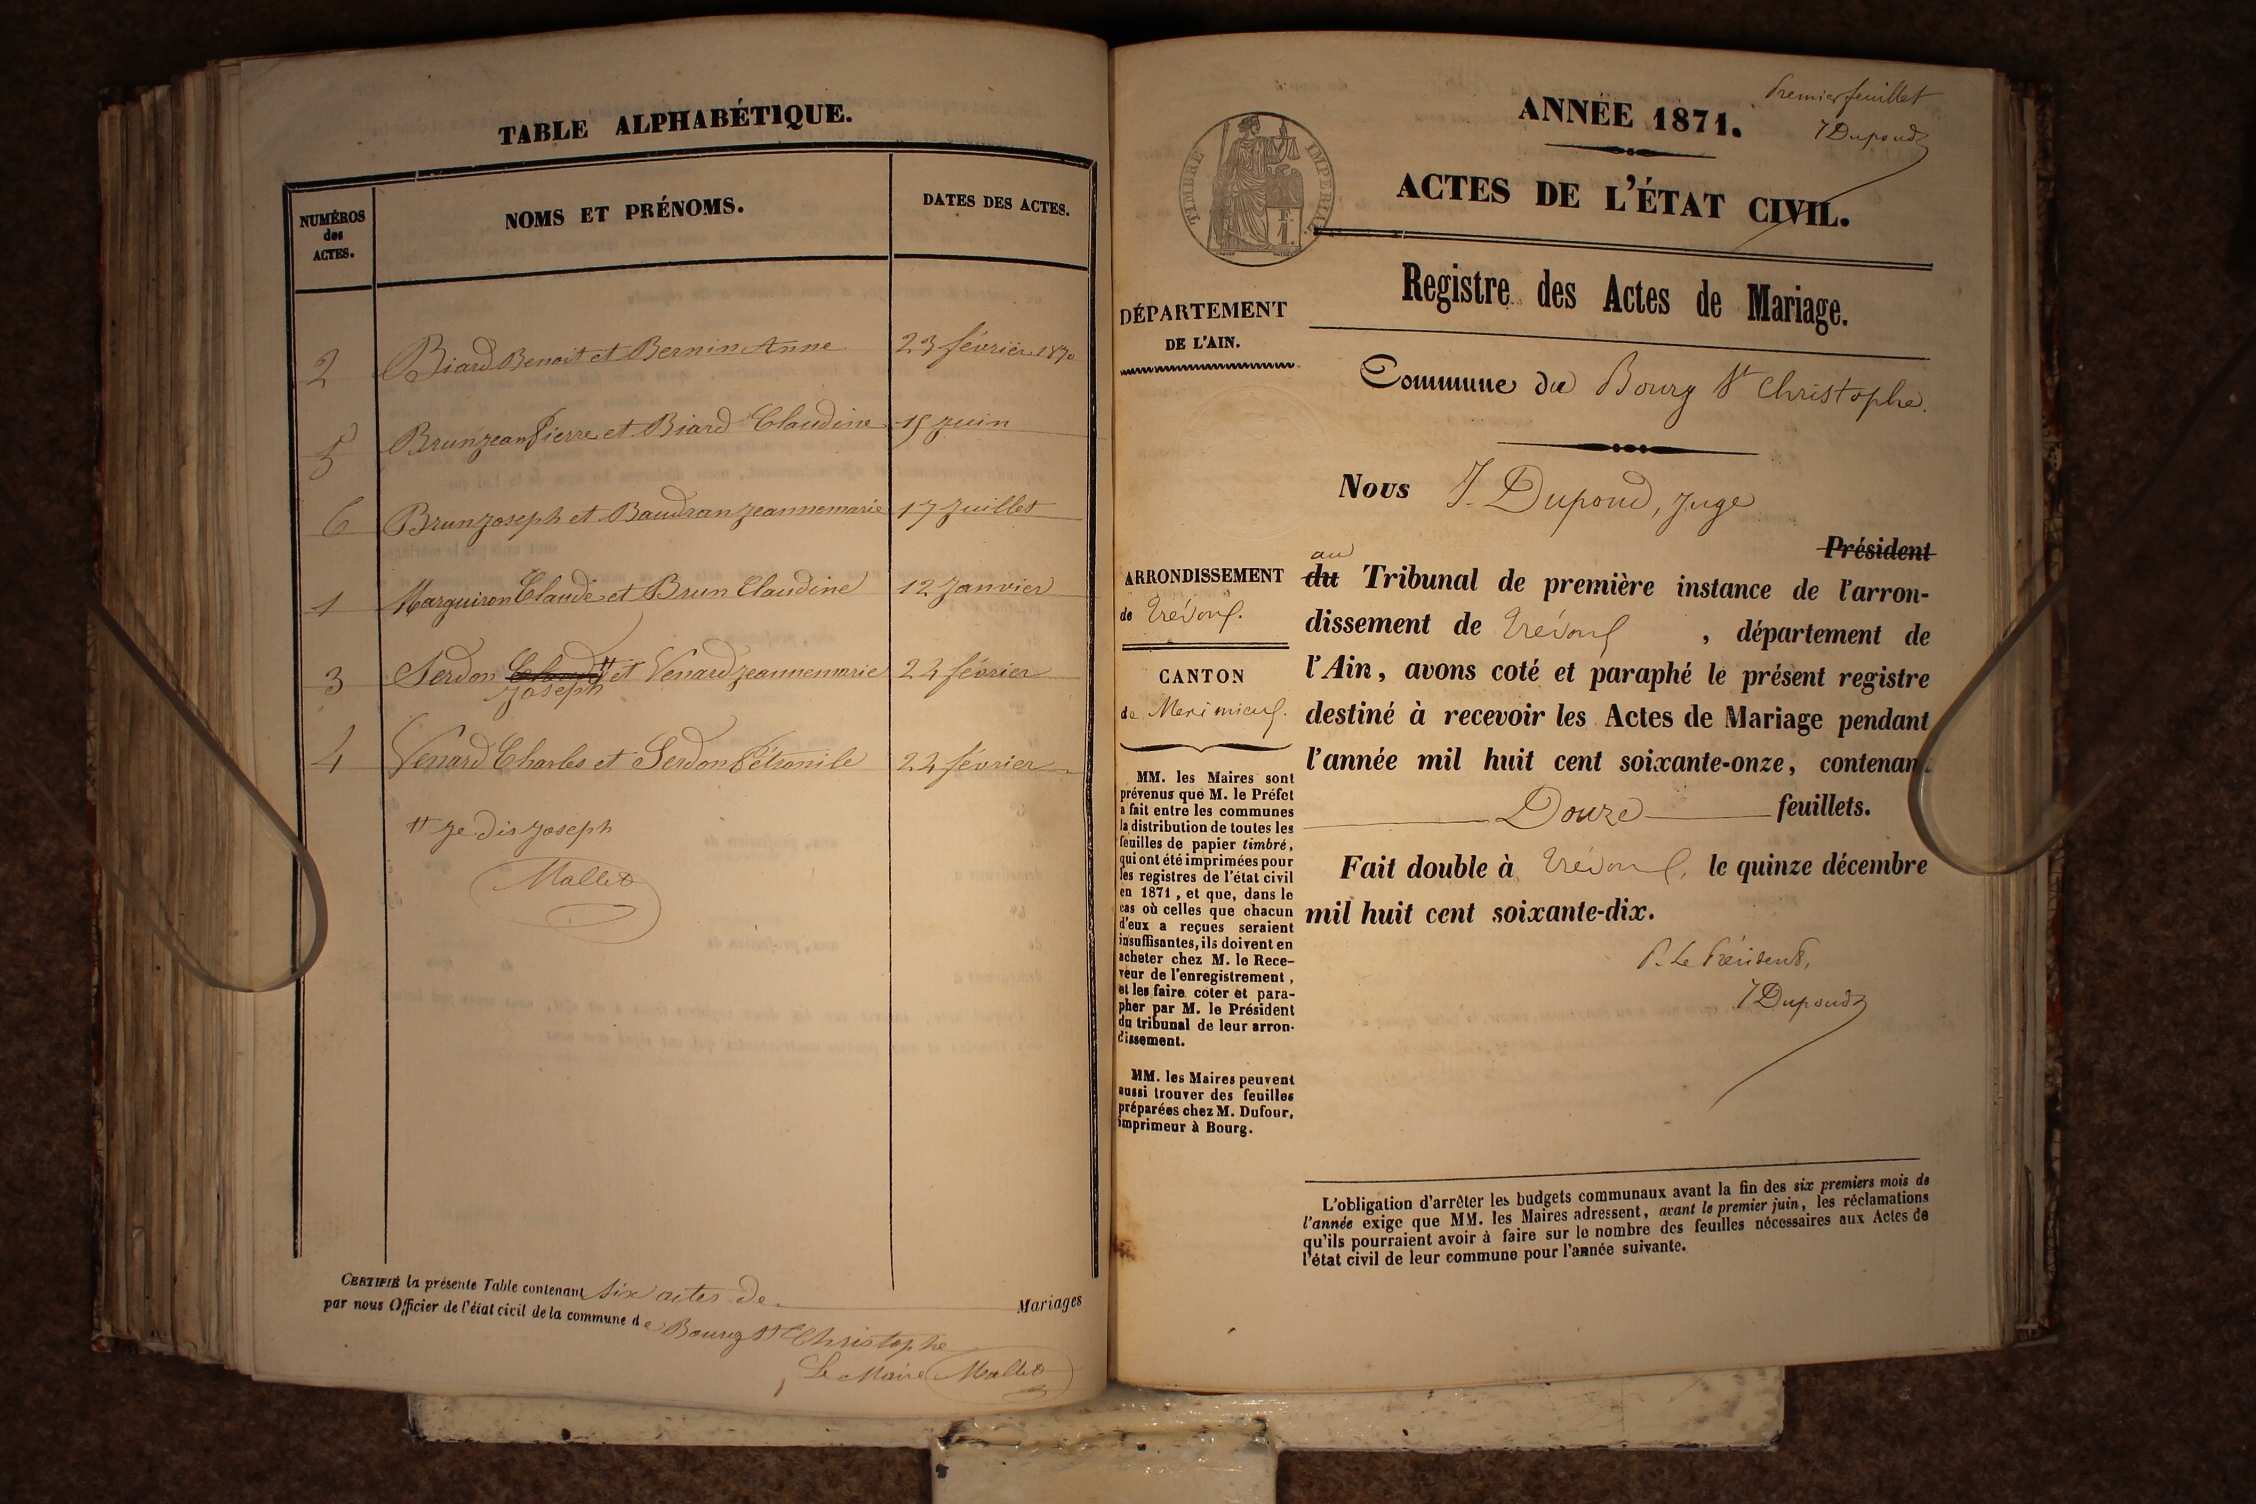 TABLE ALPHABÉTIQUE.
NUMÉROS
des
ACTES.
NOMS ET PRÉNOMS.
DATES DES ACTES.
2 Biard Benoit et Bernin Anne 23 février 1870
5 Brun jean Pierre et Biard Claudine 15 juin
6 Brun joseph et Baudran jeannemarie 17 juillet
1 Marguiron Claude et Brun Claudine 12 janvier
3 Serdon et Venard jeannemarie 24 février
joseph
4 Venard Charles et Serdon Pétronile 24 février
je dis joseph
Mallet
CERTIFIÉ la présente Table contenant six actes de Mariages
par nous Officier de l'état civil de la commune de Bourg St Christophe
Le Maire Mallet
Premier feuillet
J Dupond
ANNÉE 1871.
TIMBRE IMPÉRIAL
F.
1.
ACTES DE L'ÉTAT CIVIL.
Registre des Actes de Mariage.
DÉPARTEMENT
DE L'AIN.
Commune de Bourg St Christophe.
Nous J. Dupond, juge
Président
au
du Tribunal de première instance de l'arron-
dissement de Trévoux, département de
l'Ain, avons coté et paraphé le présent registre
destiné à recevoir les Actes de Mariage pendant
l'année mil huit cent soixante-onze, contenant
Douze feuillets.
Fait double à Trévoux, le quinze décembre
mil huit cent soixante-dix.
P. Le Président,
J Dupond
ARRONDISSEMENT
de Trévoux.
CANTON
de Meximieux.
MM. les Maires sont
prévenus que M. le Préfet
a fait entre les communes
la distribution de toutes les
feuilles de papier timbré,
qui ont été imprimées pour
les registres de l'état civil
en 1871, et que, dans le
cas où celles que chacun
d'eux a reçues seraient
insuffisantes, ils doivent en
acheter chez M. le Rece-
veur de l'enregistrement,
et les faire coter et para-
pher par M. le Président
du tribunal de leur arron-
dissement.
MM. les Maires peuvent
aussi trouver des feuilles
préparées chez M. Dufour,
imprimeur à Bourg.
L'obligation d'arrêter les budgets communaux avant la fin des six premiers mois de
l'année exige que MM. les Maires adressent, avant le premier juin, les réclamations
qu'ils pourraient avoir à faire sur le nombre des feuilles nécessaires aux Actes de
l'état civil de leur commune pour l'année suivante.